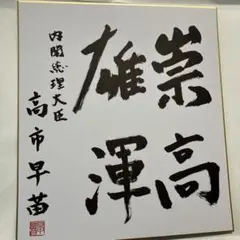 崇高
雄渾
内閣総理大臣
高市早苗